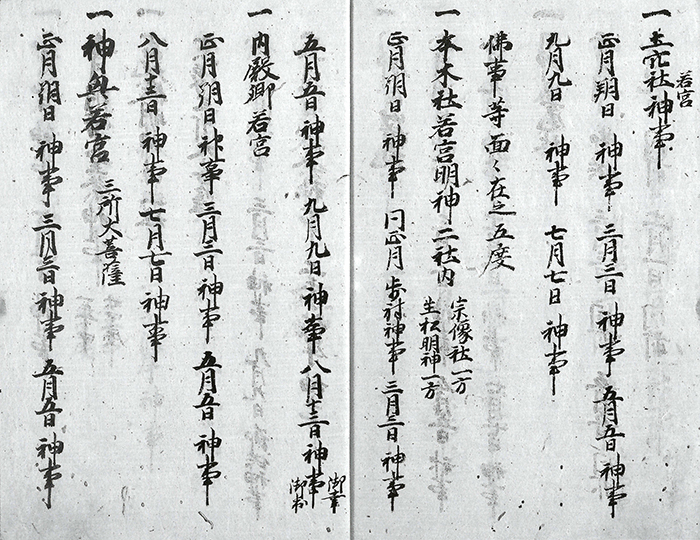 一 土穴社神事
若宮
正月朔日 神事 三月三日 神事 五月五日 神事
九月九日 神事 七月七日 神事
佛事等面々在之 五度
一 本木社若宮明神 二社内
宗像社一方
生松明神一方
正月朔日 神事 同正月 神事 三月三日 神事
五月五日 神事 九月九日 神事 八月十三日 神事
御幸
一 内殿卿若宮
正月朔日 神事 三月三日 神事 五月五日 神事
八月十三日 神事 七月七日 神事
一 神興若宮 三所大菩薩
正月朔日 神事 三月三日 神事 五月五日 神事